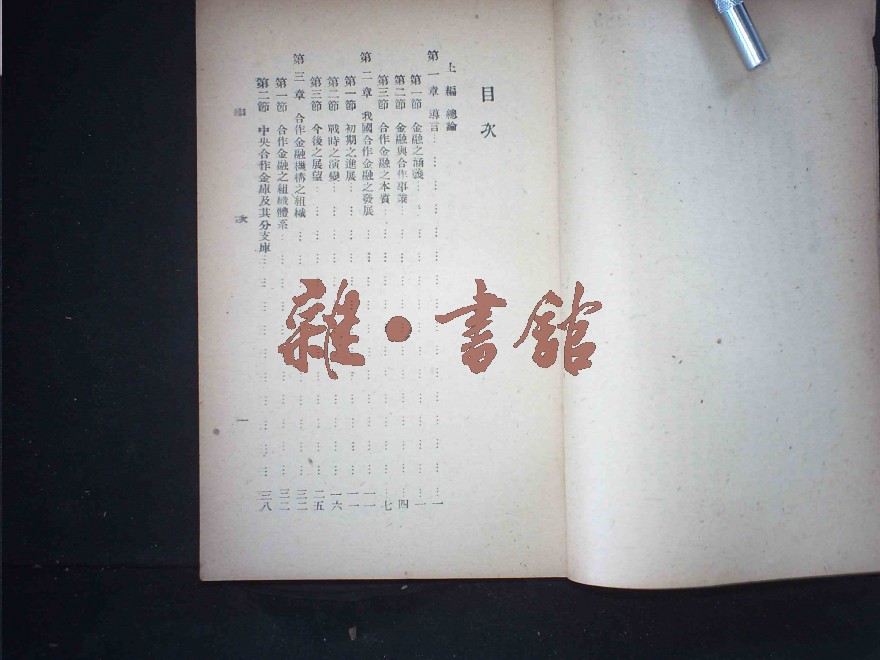 目次
上編 總論
第一章 導言…………………一
第一節 金融之涵義…………………一
第二節 金融與合作事業…………………四
第三節 合作金融之本質…………………七
第二章 我國合作金融之發展…………………一一
第一節 初期之進展…………………一一
第二節 戰時之演變…………………一六
第三節 今後之展望…………………二五
第三章 合作金融機構之組織…………………三二
第一節 合作金融之組織體系…………………三二
第二節 中央合作金庫及其分支庫…………………三八
目次 一
雜·書館